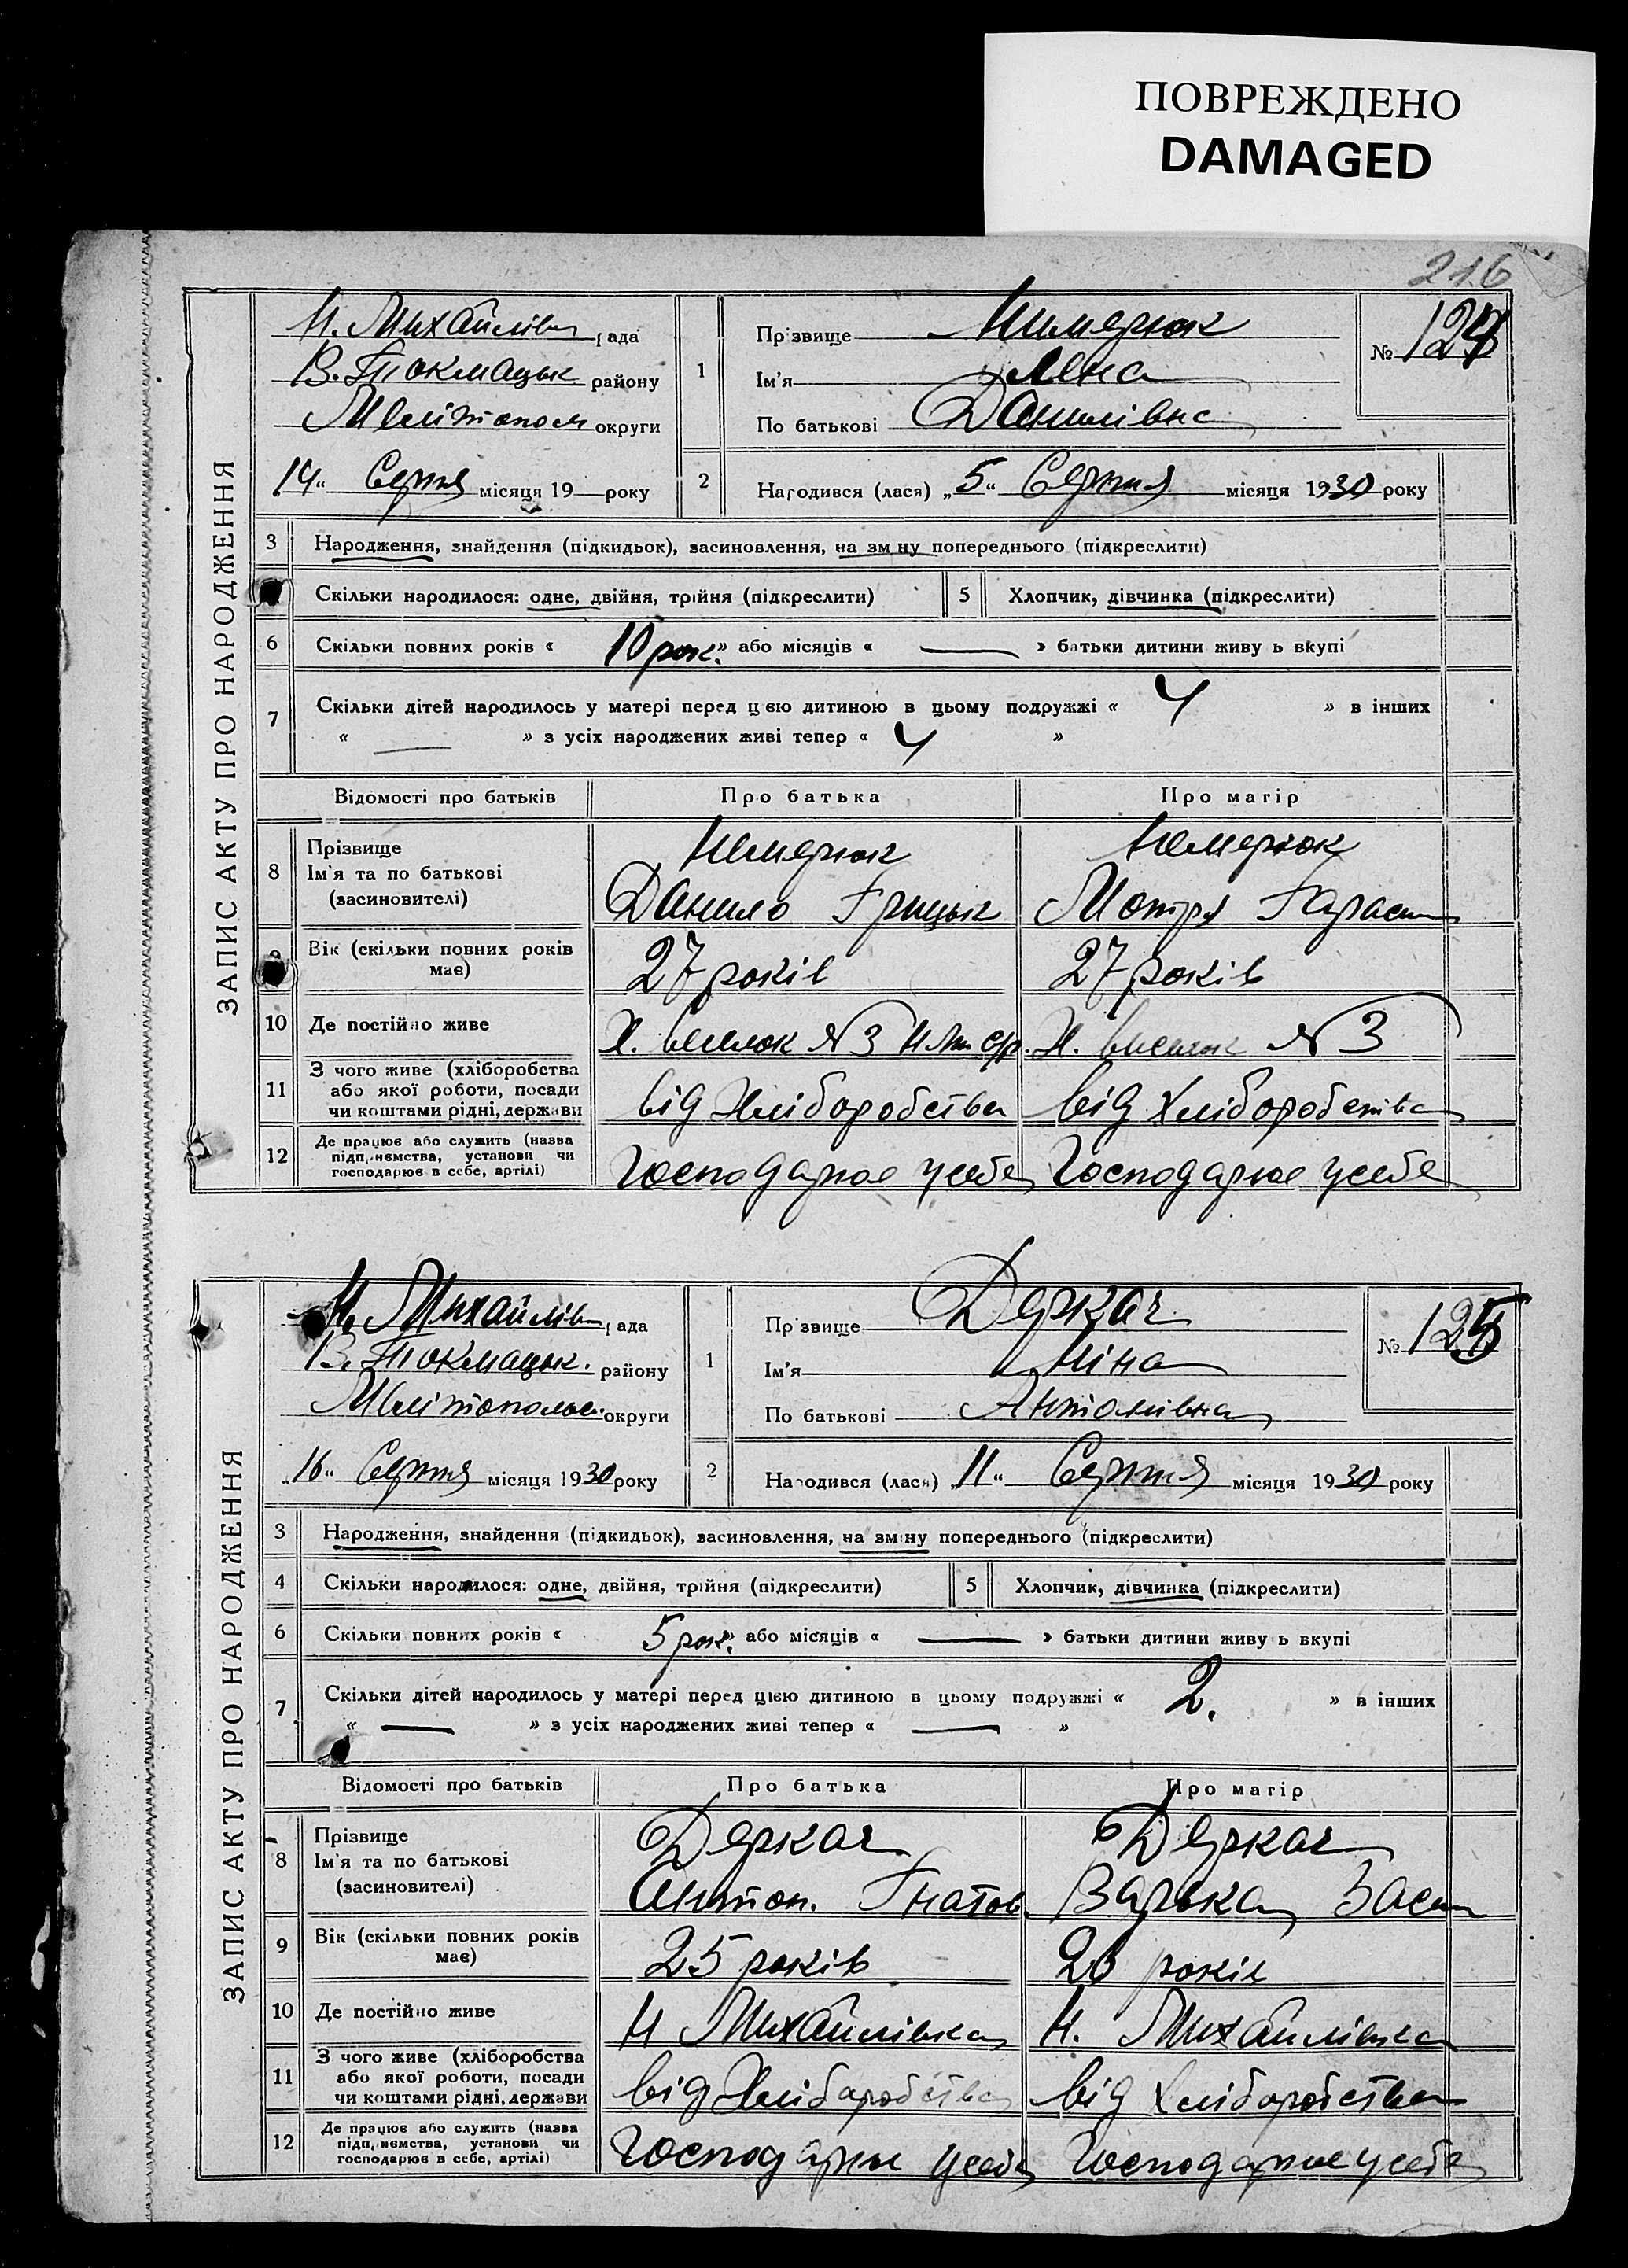 ПОВРЕЖДЕНО
DAMAGED
216
ЗАПИС АКТУ ПРО НАРОДЖЕННЯ
Н. Михайлівс рада
В. Токмацьк району
Мелітопол округи
14 Серпня місяця 19 року
1
Прізвище
Ім'я Лєна
По батькові Данилівна
№ 124
2
Народився (лася) „5“ Серпня місяця 1930 року
3 Народження, знайдення (підкидьок), засиновлення, на зміну попереднього (підкреслити)
Скільки народилося: одне, двійня, трійня (підкреслити) 5 Хлопчик, дівчинка (підкреслити)
6 Скільки повних років « 10 рок. » або місяців « — » батьки дитини живуть вкупі
7 Скільки дітей народилось у матері перед цією дитиною в цьому подружжі « 4 » в інших
« — » з усіх народжених живі тепер « 4 »
Відомості про батьків Про батька Про матір
8 Прізвище
Ім'я та по батькові
(засновителі)
Немерюк Немерюк
Данило Грицьк Мотря Гарасим
9 Вік (скільки повних років має) 27 років 27 років
10 Де постійно живе Х. виселок № 3 Н Мих. с/р. Х. виселок № 3
11 З чого живе (хліборобства
або якої роботи, посади
чи коштами рідні, держави
від Хліборобства від Хліборобства
12 Де працює або служить (назва
підприємства, установи чи
господарює в себе, артілі)
Господарює у себе Господарює у себе
ЗАПИС АКТУ ПРО НАРОДЖЕННЯ
Н. Михайлів рада
В. Токмацьк. району
Мелітопольс. округи
„16“ Серпня місяця 1930 року
1
Прізвище Деркач
Ім'я Ніна
По батькові Антонівна
№ 125
2
Народився (лася) „11“ Серпня місяця 1930 року
3 Народження, знайдення (підкидьок), засиновлення, на зміну попереднього (підкреслити)
4 Скільки народилося: одне, двійня, трійня (підкреслити) 5 Хлопчик, дівчинка (підкреслити)
6 Скільки повних років « 5 рок. » або місяців « — » батьки дитини живуть вкупі
7 Скільки дітей народилось у матері перед цією дитиною в цьому подружжі « 2. » в інших
« — » з усіх народжених живі тепер « — »
Відомості про батьків Про батька Про матір
8 Прізвище
Ім'я та по батькові
(засиновителі)
Деркач Деркач
Антон. Гнатов. Варька Васил
9 Вік (скільки повних років має) 25 років років
10 Де постійно живе Н Михайлівка Н. Михайлівка
11 З чого живе (хліборобства
або якої роботи, посади
чи коштами рідні, держави
від Хліборобства від Хліборобства
12 Де працює або служить (назва
підприємства, установи чи
господарює в себе, артілі)
Господарює у себе Господарює у себе